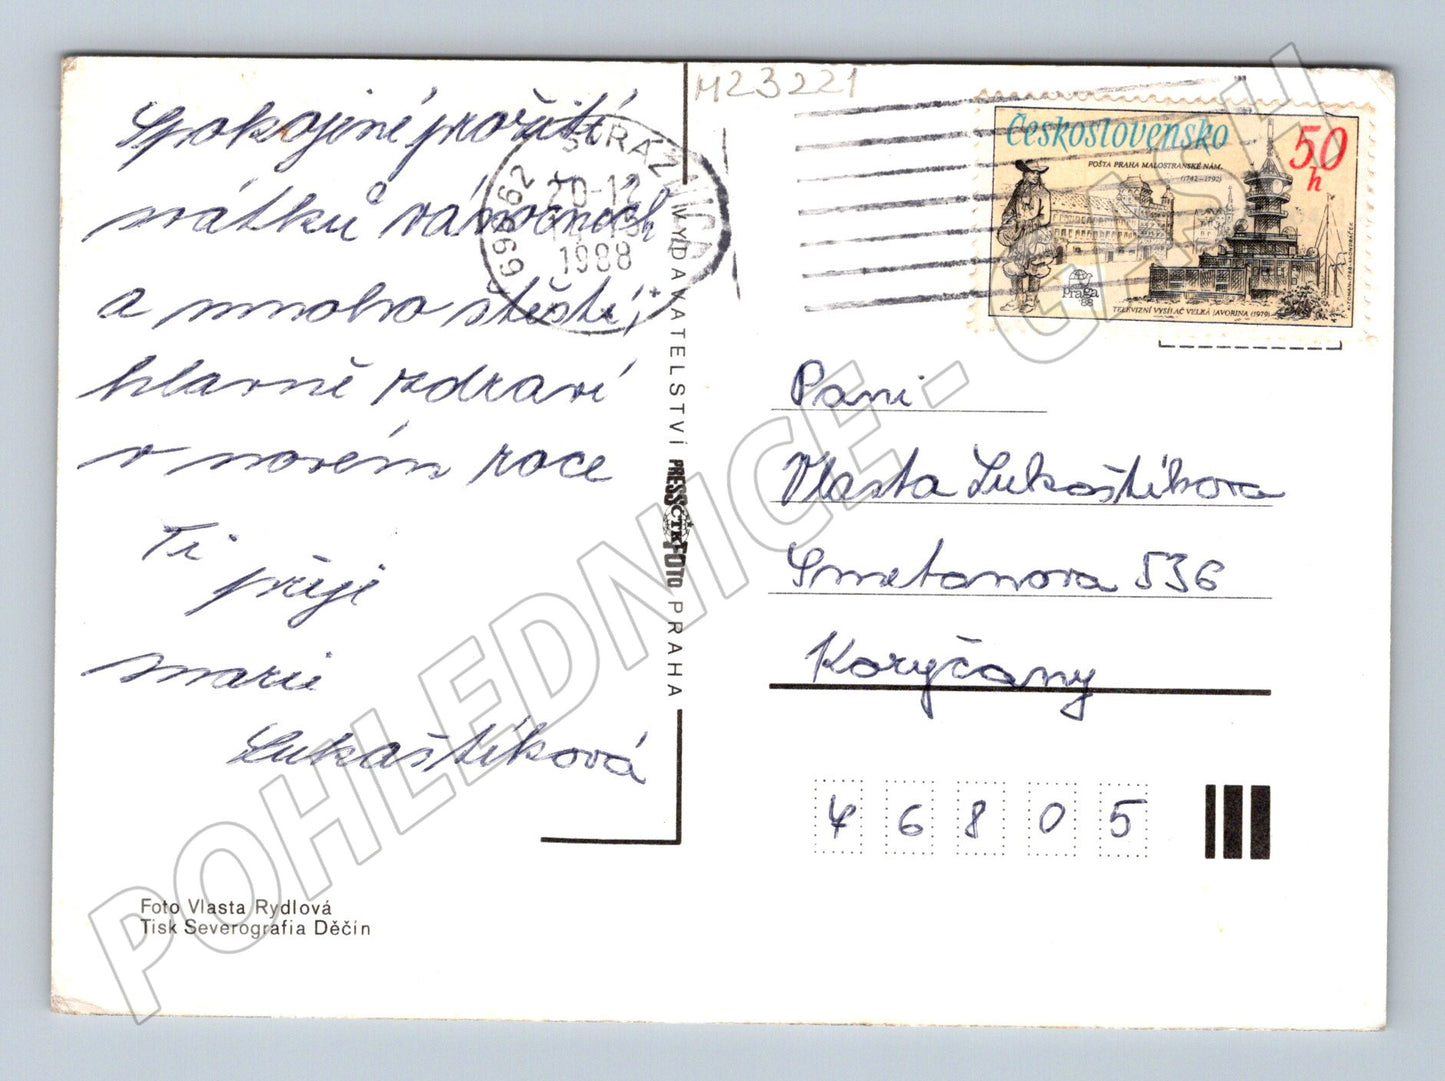 Spokojené prožití
svátků vánočních
a mnoho štěstí,
hlavně zdraví
v novém roce
Ti
přeji
Marie
Lukaštíková
Foto Vlasta Rydlová
Tisk Severografia Děčín
VYDAVATELSTVÍ PRESSFOTO PRAHA
ČTK
M23221
STRÁŽNICE
696 62
20-12
1988
Československo
50
h
POŠTA PRAHA MALOSTRANSKÉ NÁM.
(1742-1792)
praga
88
TELEVIZNÍ VYSÍLAČ VELKÁ JAVORINA (1979)
Pani
Vlasta Lukaštíkova
Smetanova 536
Koryčany
46805
POHLEDNICE - CASH